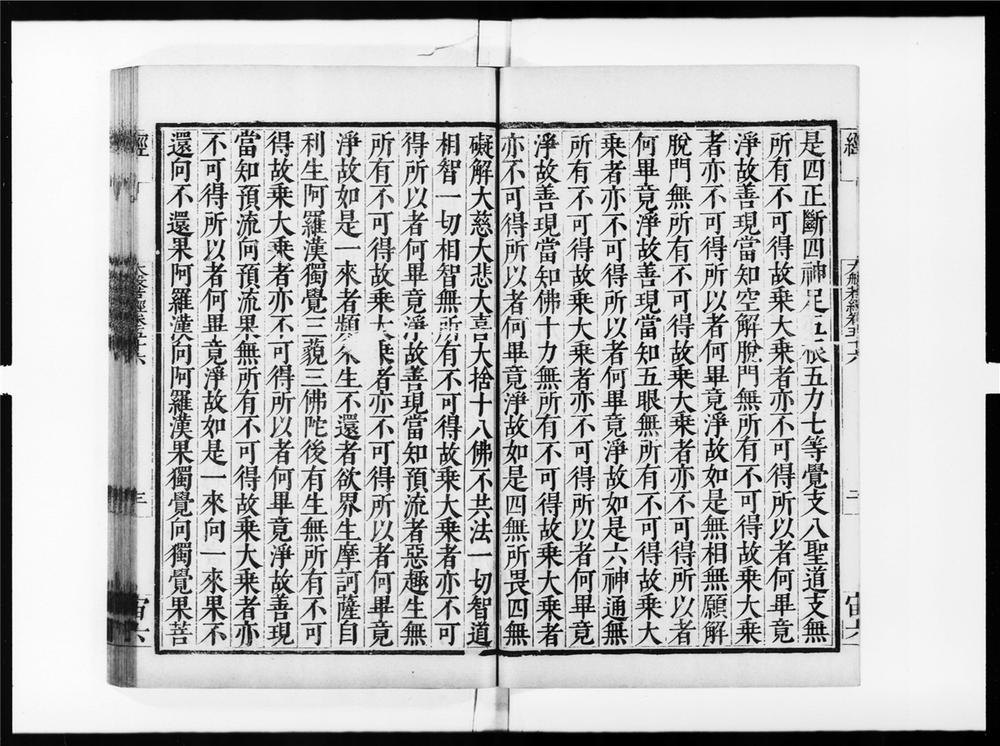 是四正斷四神足五根五力七等覺支八聖道支無
所有不可得故乘大乘者亦不可得所以者何畢竟
淨故善現當知空解脫門無所有不可得故乘大乘
者亦不可得所以者何畢竟淨故如是無相無願解
脫門無所有不可得故乘大乘者亦不可得所以者
何畢竟淨故善現當知五眼無所有不可得故乘大
乘者亦不可得所以者何畢竟淨故如是六神通無
所有不可得故乘大乘者亦不可得所以者何畢竟
淨故善現當知佛十力無所有不可得故乘大乘者
亦不可得所以者何畢竟淨故如是四無所畏四無
礙解大慈大悲大喜大捨十八佛不共法一切智道
相智一切相智無所有不可得故乘大乘者亦不可
得所以者何畢竟淨故善現當知預流者惡趣生無
所有不可得故乘大乘者亦不可得所以者何畢竟
淨故如是一來者頻來生不還者欲界生摩訶薩自
利生阿羅漢獨覺三藐三佛陀後有生無所有不可
得故乘大乘者亦不可得所以者何畢竟淨故善現
當知預流向預流果無所有不可得故乘大乘者亦
不可得所以者何畢竟淨故如是一來向一來果不
還向不還果阿羅漢向阿羅漢果獨覺向獨覺果菩